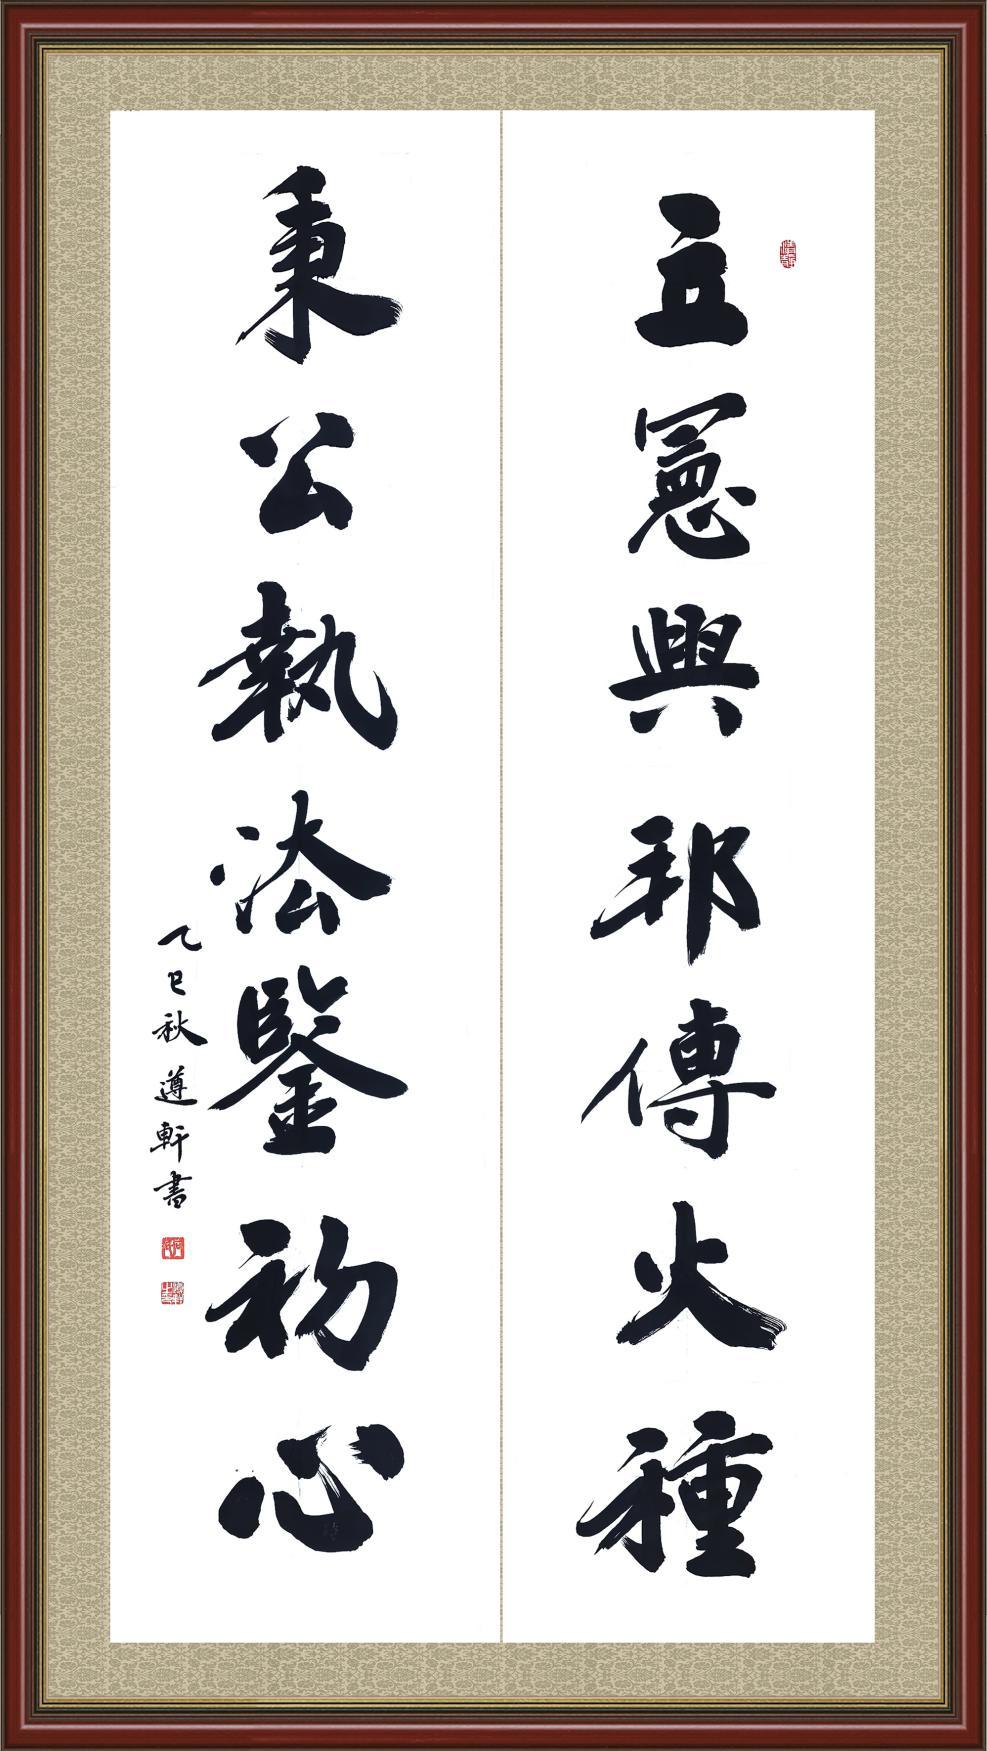 立憲興邦傳火種
秉公執法鑒初心
乙巳秋遵軒書